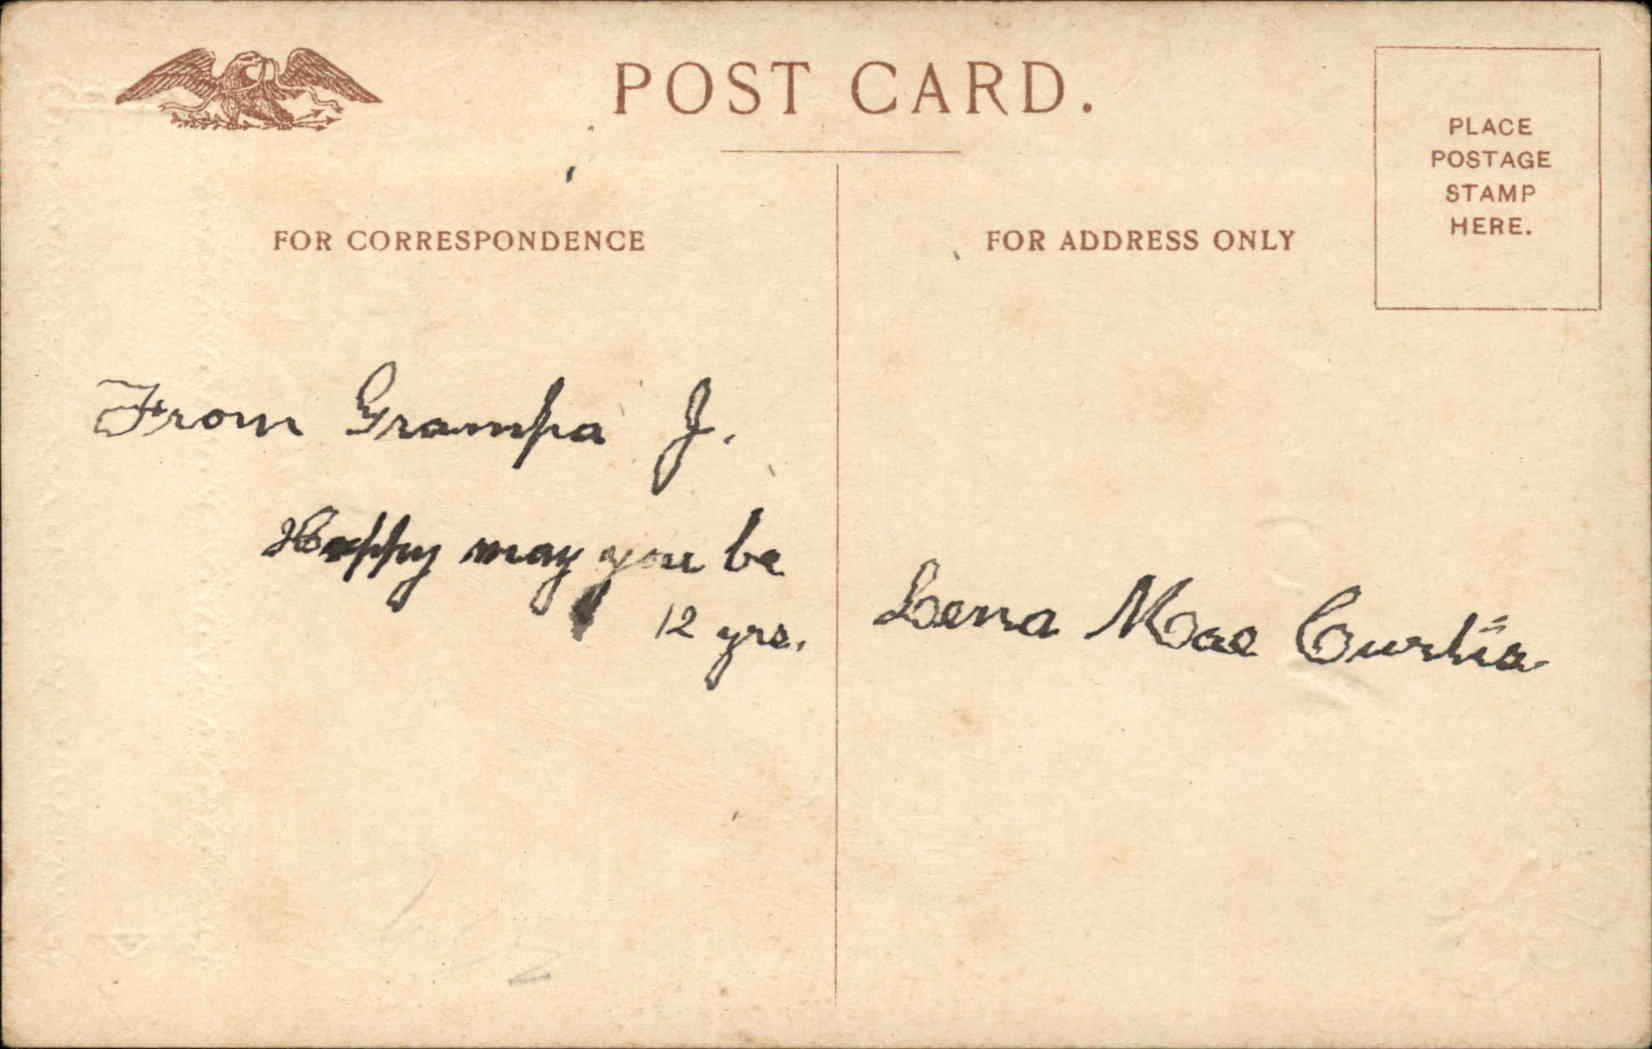 POST CARD.
PLACE
POSTAGE
STAMP
HERE.
FOR CORRESPONDENCE
FOR ADDRESS ONLY
From Grampa J.
Happy may you be
12 yrs.
Lena Mae Curtis